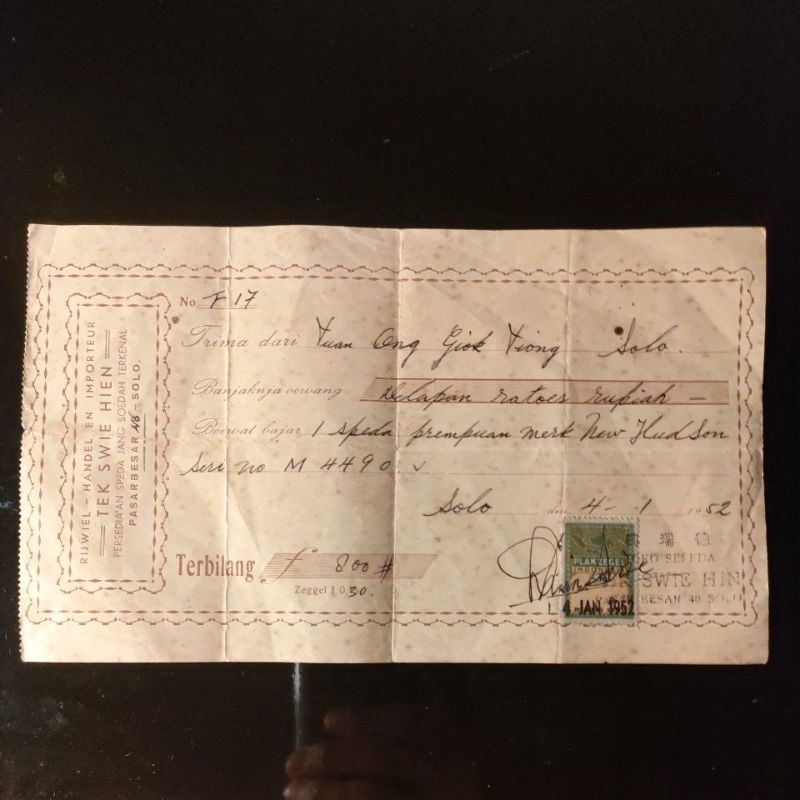 RIJWIEL-HANDEL EN IMPORTEUR
— TEK SWIE HIEN —
PERSEDIA'AN SPEDA JANG SOEDAH TERKENAL
PASARBESAR 48 - SOLO.
No F 17
Trima dari Tuan Ong Giok Tiong Solo.
Banjaknja oewang delapan ratoes rupiah —
Boewat bajar 1 speda prempuan merk New Hudson
Seri no M 4490
Solo 4-1 1952
Terbilang f 800 #
Zeggel f 0,30.
PLAKZEGEL
4 JAN 1952
瑞德
TOKO SEPEDA
SWIE HIN
BESAR 48 SOLO